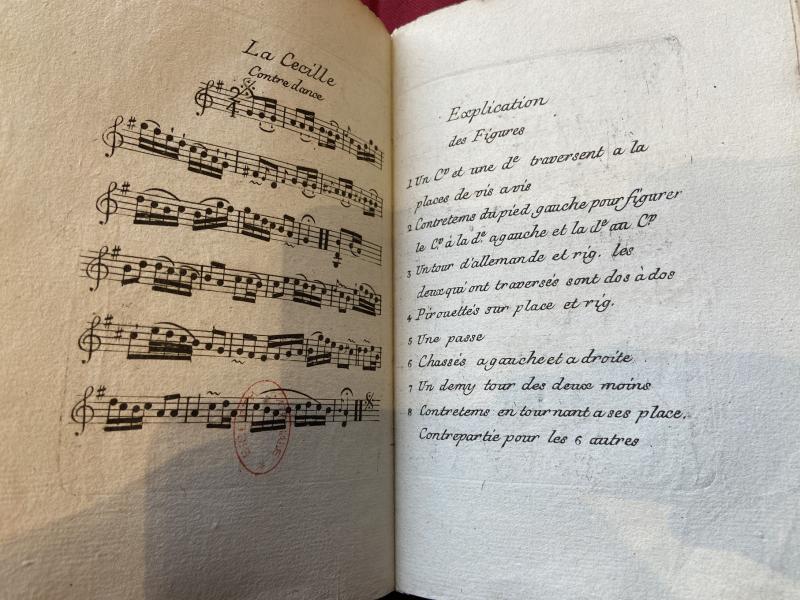 La Cecille
Contre dance
2
4
Explication
des Figures
1 Un Cᵛ et une dᵉ traversent a la
places de vis a vis
2 Contretems du pied gauche pour figurer
le Cᵛ à la dᵉ a gauche et la dᵉ au Cᵛ
3 Un tour d'allemande et rig. les
deux qui ont traversés sont dos à dos
4 Pirouettés sur place et rig.
5 Une passe
6 Chassés a gauche et a droite
7 Un demy tour des deux moins
8 Contretems en tournant a ses place.
Contrepartie pour les 6 autres